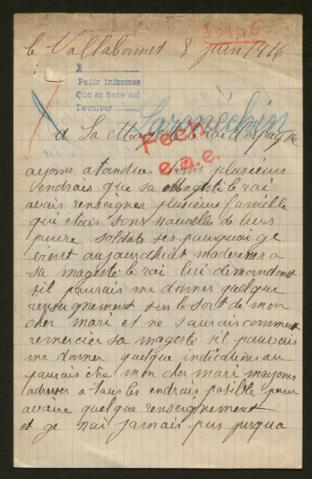 35406
le Vallabonnet 8 juin 1916
X
Pedir informes
Que se hace así
Devolver
Larméchin
Fecho
e.a.e.
A Sa Mag le roi d espagne
ayons atandue plusieurs
vendrais que sa Magesté le rai
avais renseigner plusieurs famille
qui etais sans nouvelle de leurs
pauvre soldats ses pourquoi ge
vient aujourdheut madresser a
sa magesté le rai lui dimandant
sil pourrais me donner quelque
renseignement sur le sort de mon
cher mari et ne saurais comment
remercier sa magesté sil pouvais
me donner quelque indications au
cher mari mayons
adresser a tous les endrais posible pour
avaire quelque renseignement
et ge nai jamais pus jusqua